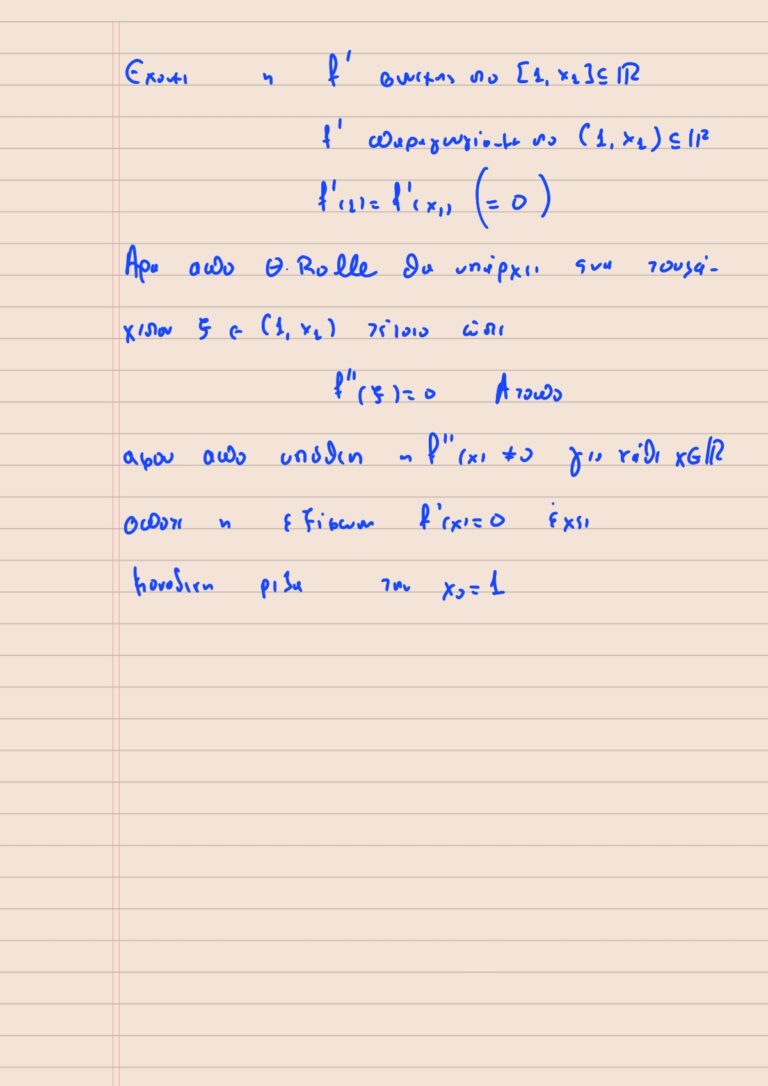 Εχουμε η f' συνεχης στο [1, x₁] ⊆ ℝ
f' παραγωγίσιμη στο (1, x₁) ⊆ ℝ
f'(1) = f'(x₁) (= 0)
Αρα απο Θ. Rolle θα υπάρχει ενα τουλά-
χιστον ξ ∈ (1, x₁) τέτοιο ώστε
f''(ξ) = 0 Ατοπο
αφου απο υπόθεση η f''(x) ≠ 0 για κάθε x ∈ ℝ
οποτε η εξίσωση f'(x) = 0 έχει
μοναδικη ριζα την x₀ = 1